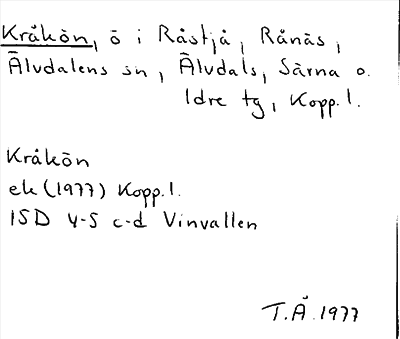 Kråkön, ö i Råstjå, Rånäs,
Älvdalens sn, Älvdals, Särna o.
Idre tg, Kopp.l.
Kråkön
ek (1977) Kopp.l.
15D 4-5 c-d Vinvallen
T.Å. 1977